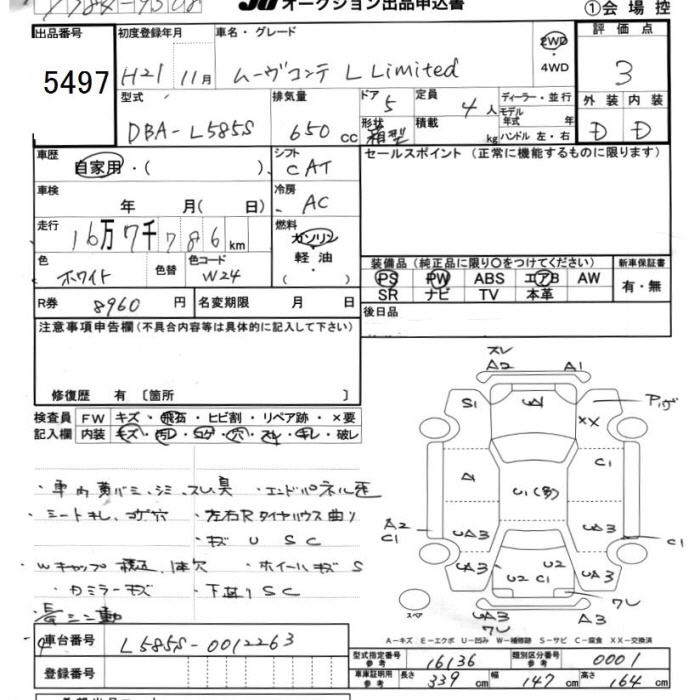 オークション出品申込書
①会場控
出品番号 初度登録年月 車名・グレード 評価点
5497 H21 11月 ムーヴコンテ L Limited 2WD・4WD 3
型式 排気量 ドア 5 定員 4人 ディーラー・並行 外装 内装
DBA-L585S 650cc 形状 箱型 積載 kg モデル年式 年 ハンドル 左・右 D D
車歴 自家用・( ) シフト CAT セールスポイント (正常に機能するものに限ります)
車検 年 月( 日) 冷房 AC
走行 16万7千786km 燃料 ガソリン・軽油・( )
色 ホワイト 色替 色コード W24
装備品 (純正品に限り○をつけてください) 新車保証書
PS PW ABS エアB AW 有・無
SR ナビ TV 本革
R券 8960円 名変期限 月 日 後日品
注意事項申告欄(不具合内容等は具体的に記入して下さい)
修復歴 有 〔箇所 〕
検査員 FW キズ・飛石・ヒビ割・リペア跡・×要
記入欄 内装 キズ・汚レ・コゲ・穴・スレ・キレ・破レ
・車内黄バミ、シミ、スレ、臭 ・エンドパネル歪
・シートキレ、コゲ穴 ・左右Rタイヤハウス曲り
・キズ U S C
・ホイールキズ S
・カミラーキズ ・下廻りSC
スレ
A2 A1
S1 A XX
A U1 C1
A2 C1 UA3 UA3 C1
UA3 U2 C1 U2 UA3
UA3 A3
スペア
A-キズ E-エクボ U-凹み W-補修跡 S-サビ C-腐食 XX-交換済
車台番号 L585S-0012263
登録番号
型式指定番号 参考 16136 類別区分番号 参考 0001
車庫証明用 参考 長さ 339cm 幅 147cm 高さ 164cm